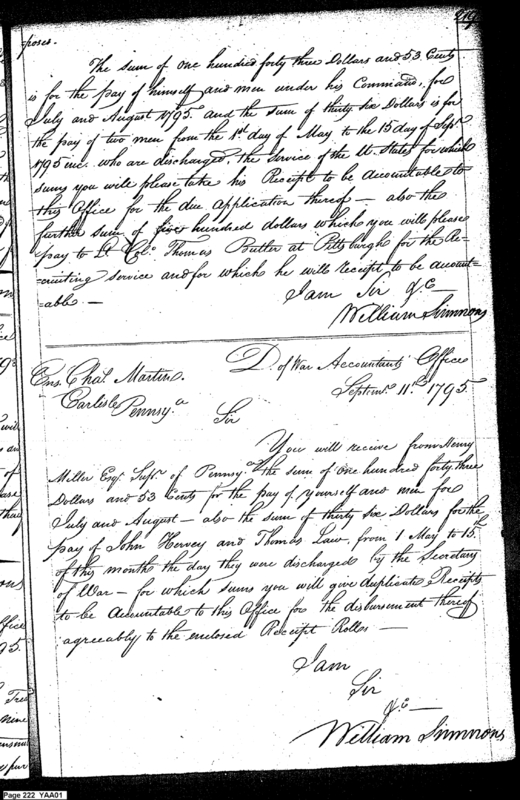 219
poses.
The sum of one hundred forty three Dollars and 53 Cents
is for the pay of himself and men under his Command, for
July and August 1795. and the sum of thirty six Dollars is for
the pay of two men from the 1st day of May to the 15 day of Sept.
1795 inc. who are discharged, the service of the U. States for which
sums you will please take his Receipt to be accountable to
this Office for the due application thereof — also the
further sum of five hundred dollars which you will please
pay to Lt. Colo. Thomas Butler at Pittsburgh for the Re-
cruiting service and for which he will receipt to be account-
-able —
I am Sir &c
William Simmons
D of War Accountants Office
Septemr. 11th 1795.
Ens. Chas. Martin.
Carlisle Pennsya.
Sir
You will receive from Henry
Miller Esqr. Supr. of Pennsya. the sum of one hundred forty three
Dollars and 53 Cents for the pay of yourself and men for
July and August — also the sum of thirty six Dollars for the
pay of John Hervey and Thomas Law, from 1 May to 15th
of this month the day they were discharged by the Secretary
of War — for which sums you will give duplicate Receipts
to be accountable to this Office for the disbursement thereof
agreeably to the enclosed Receipt Rolls —
I am
Sir
&c —
William Simmons
Page 222 YAA01